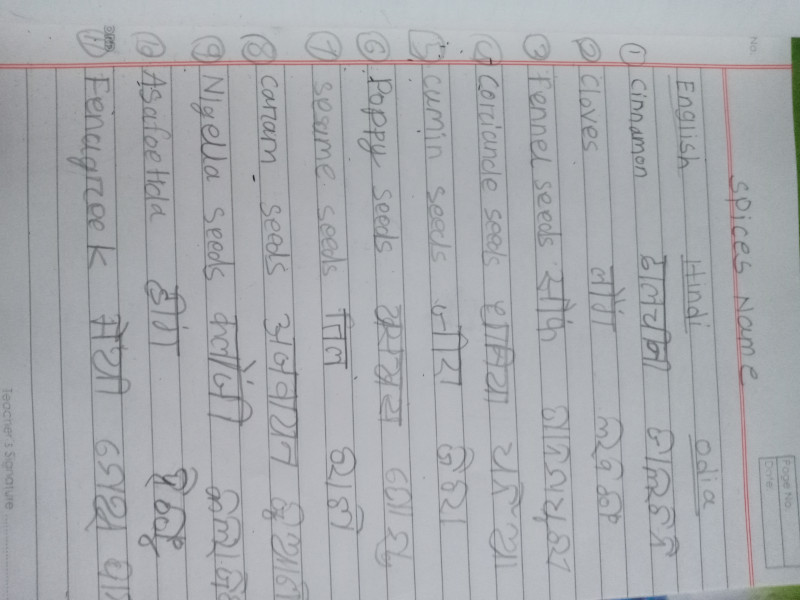 Page No.
Date
No.
Spices Name
English Hindi Odia
① Cinnamon दालचीनी ଡାଲଚିନି
② Cloves लौंग ଲବଙ୍ଗ
③ Fennel seeds सौंफ ପାନମଧୁରୀ
④ Corriande seeds धनिया ଧନିଆ
⑤ Cumin seeds जीरा ଜିରା
⑥ Poppy seeds खसखस ପୋସ୍ତୁ
⑦ sesame seeds तिल ରାଶି
⑧ caram seeds अजवायन ଜୁଆଣି
⑨ Nigella seeds कलौंजी
⑩ Asafoetida हींग ହିଙ୍ଗୁ
⑪ Fenugreek मेथी
Teacher's Signature